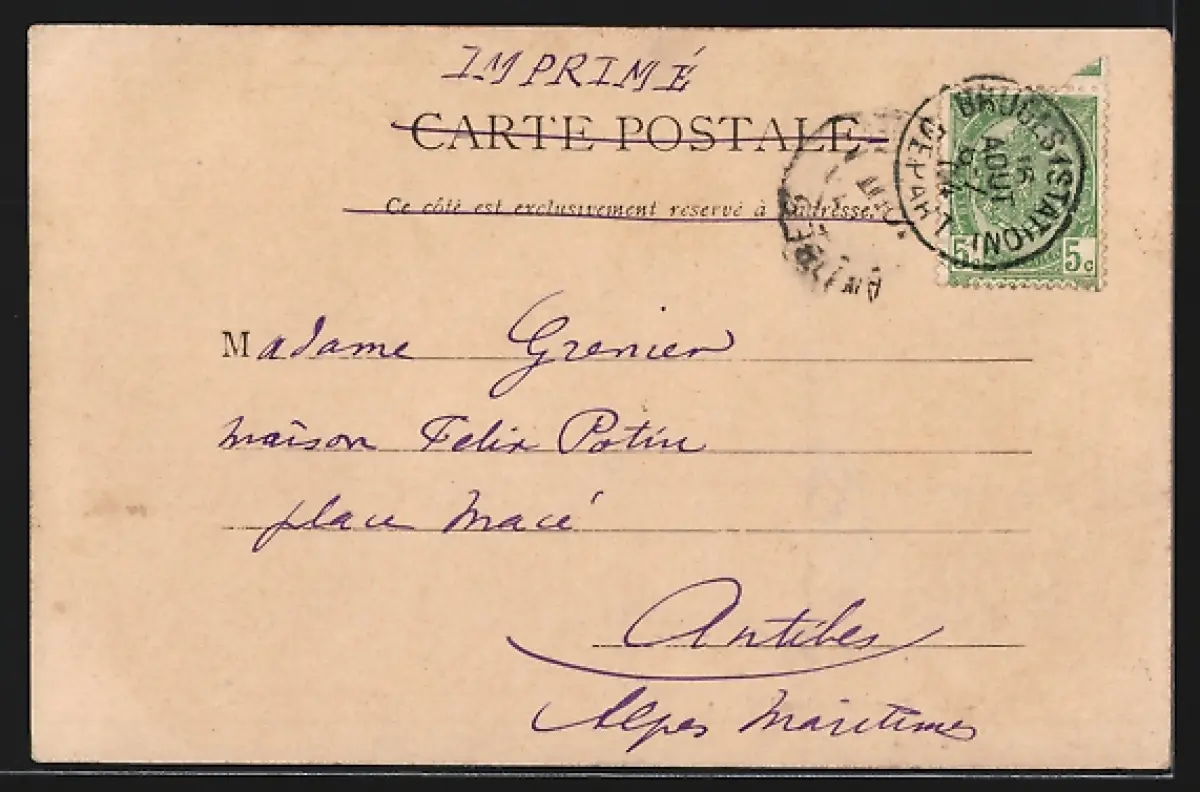 IMPRIMÉ
CARTE POSTALE
Ce côté est exclusivement réservé à l'adresse.
BRUGES (STATION)
DEPART
16
AOUT
5 5c
ANTIBES
Madame Grenier
maison Felix Potin
place Macé
Antibes
Alpes Maritimes